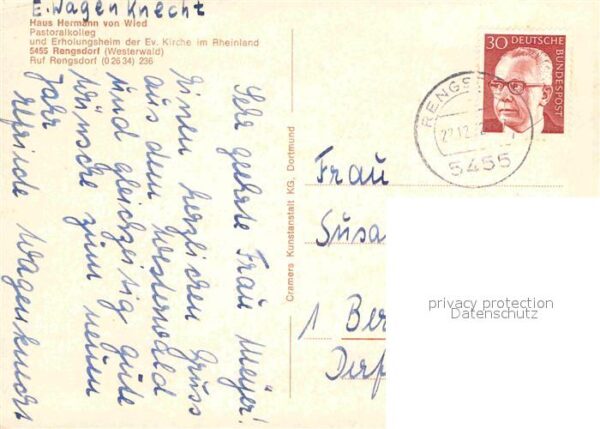 E. Wagenknecht
Haus Hermann von Wied
Pastoralkolleg
und Erholungsheim der Ev. Kirche im Rheinland
5455 Rengsdorf (Westerwald)
Ruf Rengsdorf (0 26 34) 236
Sehr geehrte Frau Meyer!
Einen herzlichen Gruss
aus dem Westerwald
und gleichzeitig gute
Wünsche zum neuen
Jahr
Wagenknecht
Cramers Kunstanstalt KG, Dortmund
30 DEUTSCHE
BUNDESPOST
RENGS
5455
Frau
Susa
1 Ber
Derf
privacy protection
Datenschutz